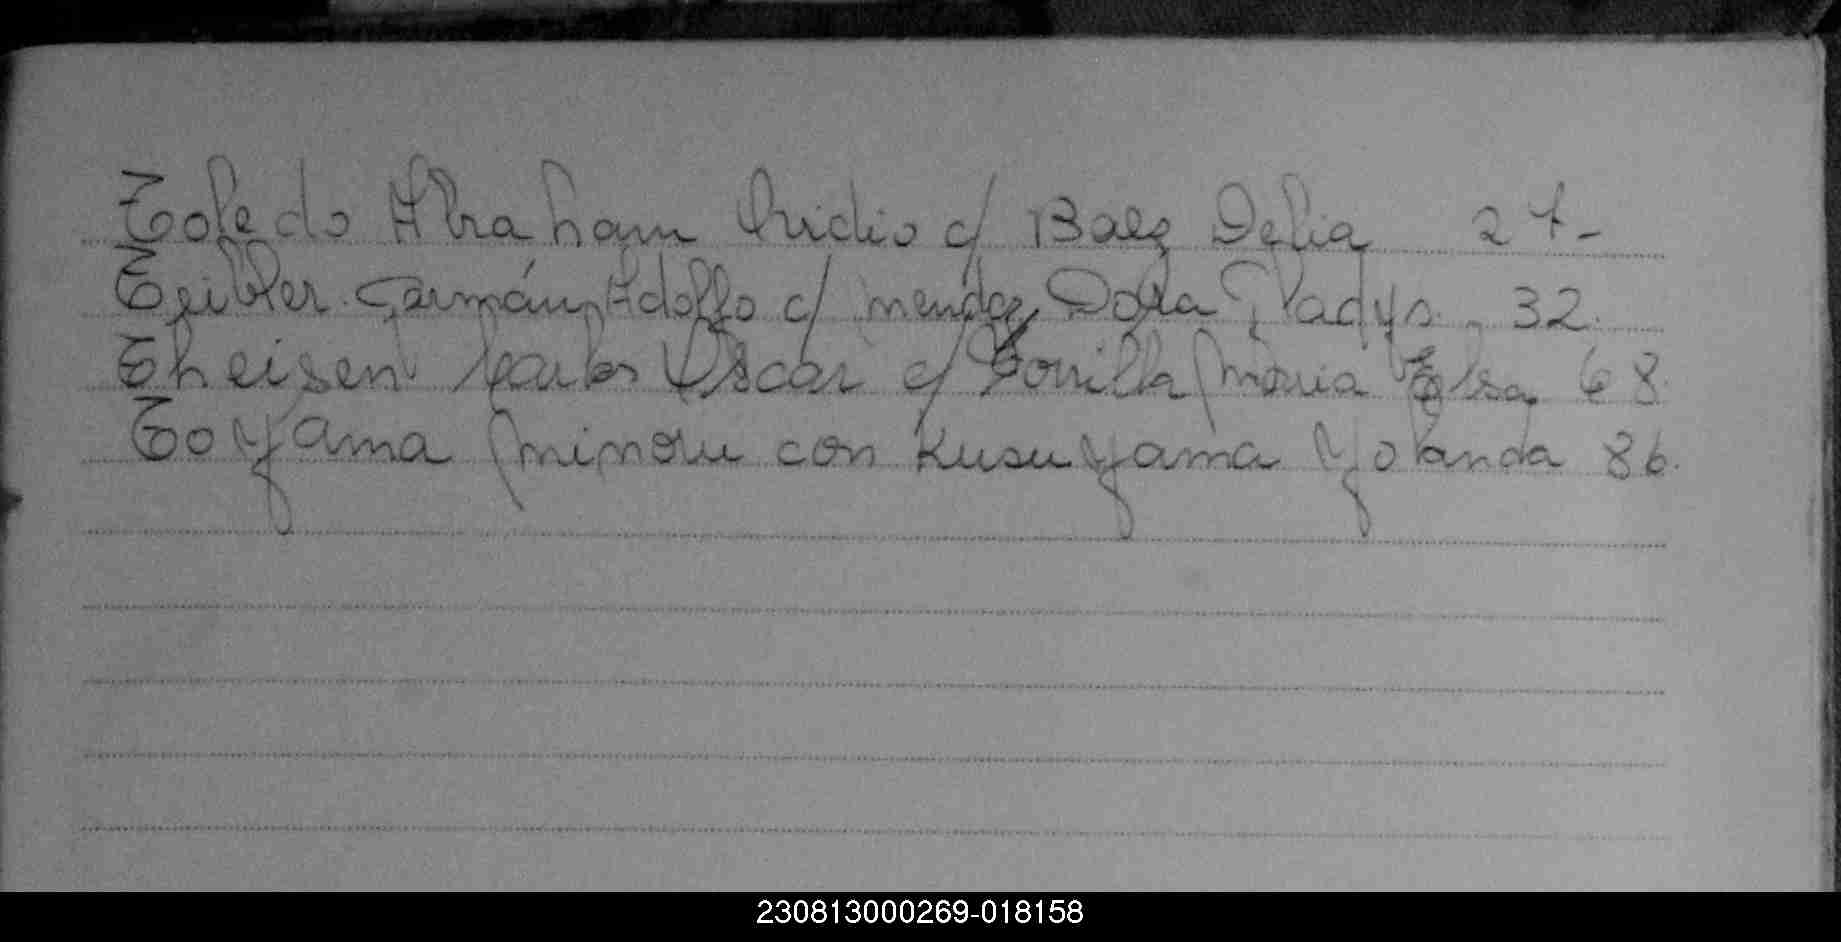 Toledo Abraham Ovidio c/ Baez Delia 27-
Teibler Germán Adolfo c/ Mendez Dora Gladys. 32.
Theisen Carlos Oscar c/ Gorrilla Maria Elsa 68.
Toyama Minoru con Kusuyama Yolanda 86.
230813000269-018158